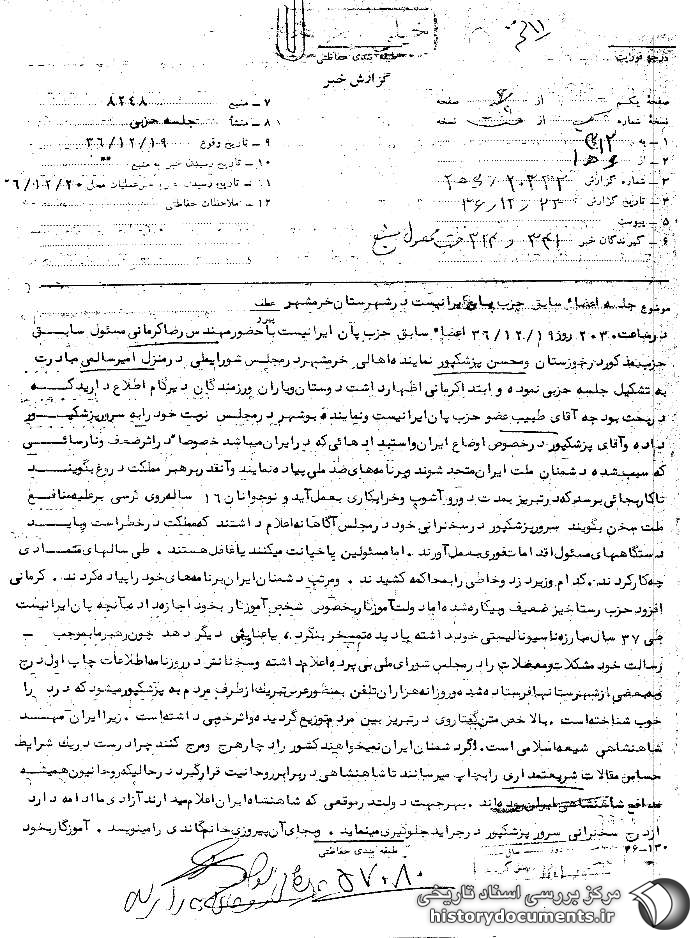 خیلی
درجه فوریت
طبقه بندی حفاظتی
گزارش خبر
صفحهٔ یکم از صفحه
نسخهٔ شماره از نسخه
۱ - به ۳۱۲
۲ - از ۶ ه ۱
۳ - شماره گزارش ۲۰۳۲۲ / ه ۶
۴ - تاریخ گزارش ۲۳ / ۱۲ / ۳۶
۵ - پیوست
۶ - گیرندگان خبر ۳۴۱ و ۳۱۲
۷ - منبع ۸۲۴۸
۸ - منشأ جلسه حزبی
۹ - تاریخ وقوع ۳۶/۱۲/۱۹
۱۰ - تاریخ رسیدن خبر به منبع
۱۱ - تاریخ رسیدن خبر به رهبر عملیات محل ۳۶/۱۲/۲۰
۱۲ - ملاحظات حفاظتی
موضوع جلسه اعضاء سابق حزب پان ایرانیست در شهرستان خرمشهر
عطف
پیرو
در ساعت ۲۰۳۰ روز ۳۶/۱۲/۱۹ اعضاء سابق حزب پان ایرانیست با حضور مهندس رضا کرمانی مسئول سابق
حزب مذکور در خوزستان و محسن پزشکپور نماینده اهالی خرمشهر در مجلس شورایملی در منزل امیر سالمی مبادرت
به تشکیل جلسه حزبی نموده و ابتدا کرمانی اظهار داشت دوستان و یاران و رزمندگان دیرگام اطلاع دارید که
در بحث بودجه آقای طبیب عضو حزب پان ایرانیست و نماینده بوشهر در مجلس نوبت خود را به سرور پزشکپور
داده و آقای پزشکپور در خصوص اوضاع ایران و استبدادهائی که در ایران میباشد خصوصا" در اثر ضعف و نارسائی
که سبب شده دشمنان ملت ایران متحد شوند و برنامه های ضد ملی پیاده نمایند و آنقدر برهبر مملکت دروغ بگویند
تا کار بجائی برسد که در تبریز بمدت دو روز آشوب و خرابکاری بعمل آید و نوجوانان ۱۶ ساله روی ترسی بر علیه منافع
ملت سخن بگویند سرور پزشکپور در سخنرانی خود در مجلس آگاهانه اعلام داشتند که مملکت در خطر است و باید
دستگاههای مسئول اقدامات فوری بعمل آورند . اما مسئولین یا خیانت میکنند یا غافل هستند . طی سالهای متمادی
چه کار کردند . کدام وزیر دزد و خاطی را به محاکمه کشیدند . و مرتب دشمنان ایران برنامه های خود را پیاده کردند . کرمانی
افزود حزب رستاخیز ضعیف و بیکاره شده اما دولت آموزگار بخصوص شخص آموزگار بخود اجازه داده به آنچه پان ایرانیست
طی ۳۷ سال مبارزه ناسیونالیستی خود داشته با دیده تمسخر بنگرد ، یا عناوینی دیگر دهد چون رهبر ما بموجب -
رسالت خود مشکلات و معضلات را در مجلس شورای ملی بی پرده اعلام داشته و سخنانش در روزنامه اطلاعات چاپ اول درج
و به بعضی از شهرستانها فرستاده شده و روزانه هزاران تلفن بمنظور عرض تبریک از طرف مردم به پزشکپور میشود که درد را
خوب شناخته است . بالاخص متن گفتار وی در تبریز بین مردم توزیع گردیده و اثر خوبی داشته است . زیرا ایران مهد
شاهنشاهی شیعه اسلامی است . اگر دشمنان ایران نمیخواهند کشور را دچار هرج و مرج کنند چرا درست در یک شرایط
حساس مقالات شریعتمداری را بچاپ میرسانند تا شاهنشاهی در برابر روحانیت قرار گیرد در حالیکه روحانیون همیشه
مدافع شاهنشاهی ایران بوده اند . بهر جهت دولت در موقعی که شاهنشاه ایران اعلام میدارند آزادی ما ادامه دارد
از درج سخنرانی سرور پزشکپور در جراید جلوگیری مینماید . و بجای آن پیروزی خانم گاندی را مینویسد . آموزگار بخود
طبقه بندی حفاظتی
۳۶-۱۳۰
۵۷۰۸۰
مرکز بررسی اسناد تاریخی
historydocuments.ir